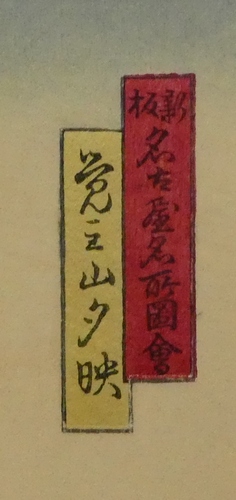 新板
名古屋名所圖會
覚王山夕映